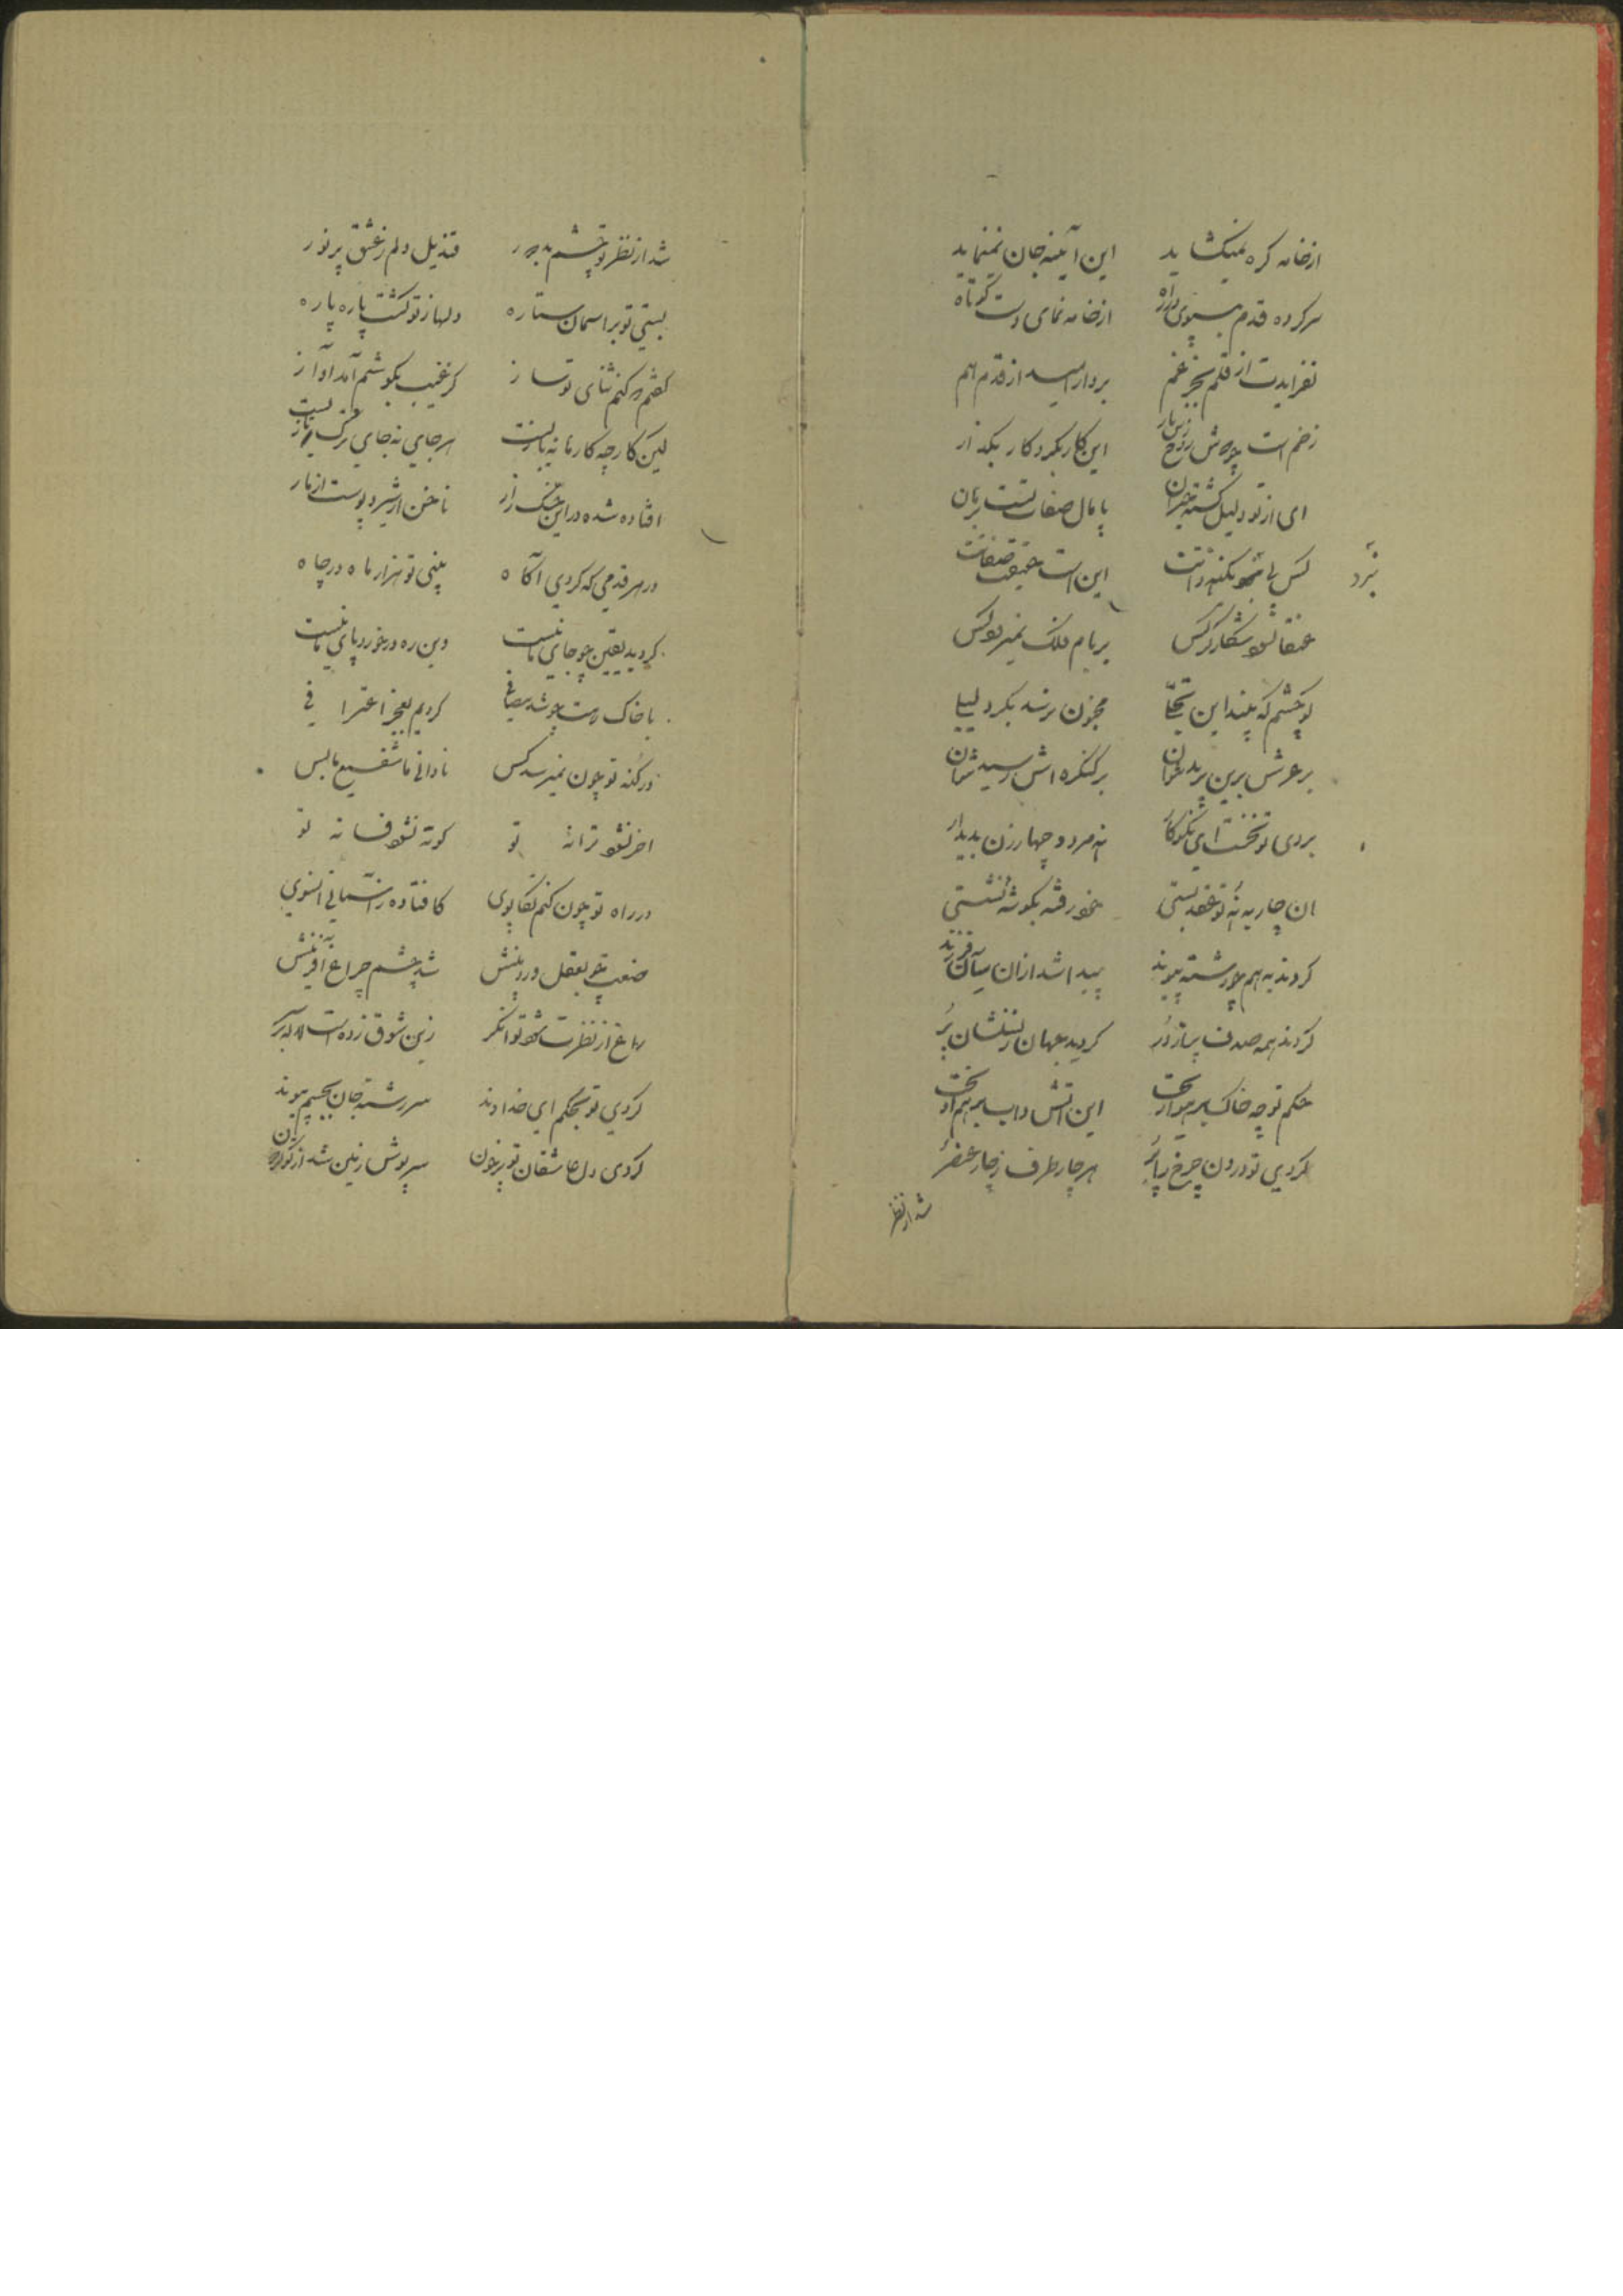 ازخامه کره نمیکشاید این آیینه جان نمینماید
سر کرده قدم بسوی راه ازخامه نمای دست کوتاه
نفزایدت از قلم بجز غم بردار امید از قدم هم
زخم است این کار بکرد کار بکذار
ای از تو دلیل کشته حیران پامال صفات تست برهان
کس پی نبرد بکنه ذاتت این است حقیقت صفاتت
عنقا نشود شکار کرکس بر بام فلک نمیرود کس
کو چشم که بیند این تجلی مجنون نرسد بکرد لیلی
بر عرش برین پرید نتوان بر کنکره اش رسید نتوان
بردی تو نخست ای نکوکار نه مرد و چهار زن پدیدار
ان چار به نه تو عقد بستی خود رفته بکوشه نشستی
کردند به هم چو رشته پیوند پیدا شد ازان میان فرزند
کردند همه صدف پر از در کردید جهان ز نسلشان پر
حکم تو چه خاک بر هوا ریخت این اتش و اب بر هم آمیخت
کردی تو درون چرخ هر چار طرف ز چار عنصر
شد از نظر
شد از نظر تو چشم بد دور قندیل دلم ز عشق پر نور
بستی تو بر اسمان ستاره دلها ز تو کشت پاره پاره
کفتم که کنم ثنای تو ساز کز غیب بکوشم آمد آواز
لیکن کار چه کار ما هر جای نه جای ترک
افتاده شده در این ناخن از شیر و پوست از مار
در هر قدمی که کردی آکاه بینی تو هزار ماه در چاه
کردید یقین چو جای ما نیست وین ره در خورد پای ما نیست
با خاک رهت چو شد کردیم بعجز اعترافی
در کنه تو چون نمیرسد کس نادانی ما شفیع ما بس
اخر نشود ترانه تو کوته نشود فسانه تو
در راه تو چون کنم تکاپوی کافتاده ز اشیانی انسوی
بعقل و در بینش شد چشم چراغ افرینش
باغ از نظرت شود توانکر زین شوق زده است لاله بر سر
کردی تو بحکم ای خداوند سر رشته جان بجسم پیوند
کردی دل عاشقان تو پر خون سرپوش زمین شد از تو کردون